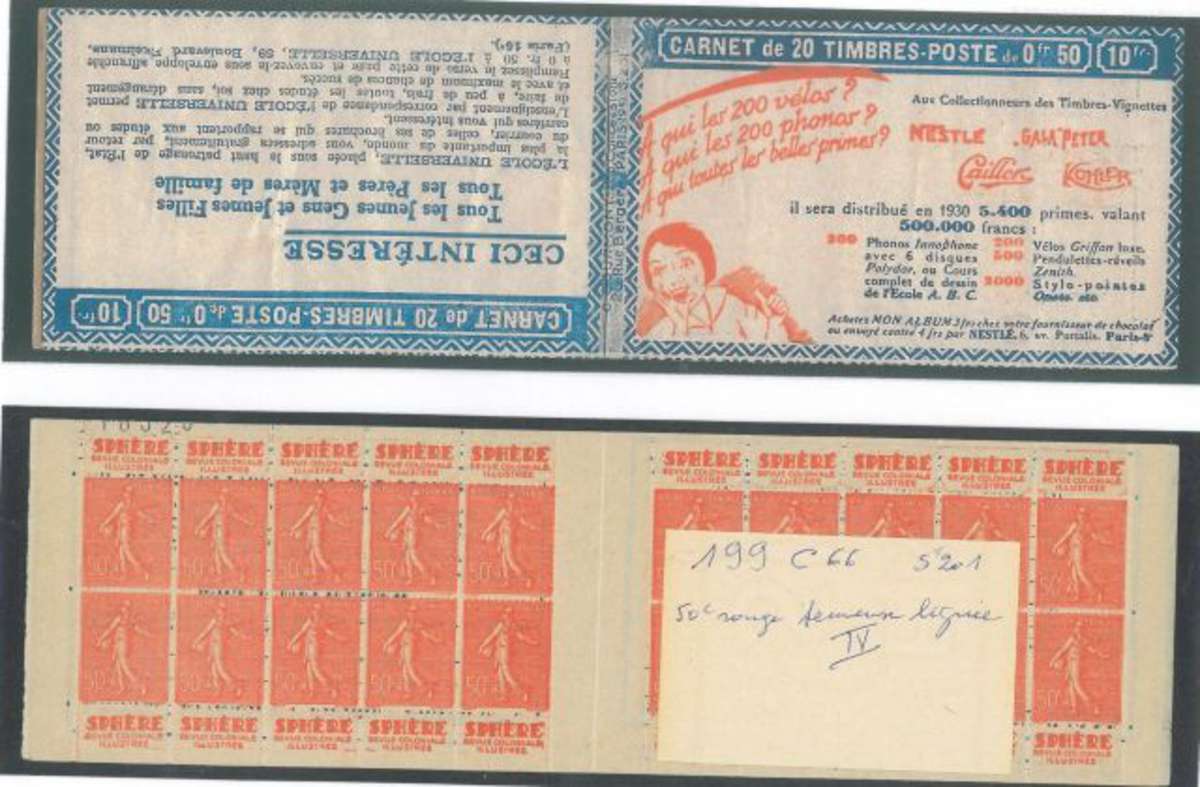 CARNET de 20 TIMBRES-POSTE de 0fr 50
10fr.
A qui les 200 vélos ?
A qui les 200 phonos ?
A qui toutes les belles primes ?
Aux Collectionneurs des Timbres-Vignettes
NESTLÉ GALA PETER
Cailler KOHLER
il sera distribué en 1930 5.400 primes, valant
500.000 francs :
200 Phonos Inophone
avec 6 disques
Polydor, ou Cours
complet de dessin
de l'Ecole A. B. C.
200 Vélos Griffon luxe.
500 Pendulettes-réveils
Zenith.
2000 Stylo-pointes
Omeo. etc
Achetez MON ALBUM 3 frs chez votre fournisseur de chocolat
ou envoyé contre 4 frs par NESTLÉ, 6, av. Portalis. Paris-8e
CARNET de 20 TIMBRES-POSTE de 0fr 50
10fr.
CECI INTÉRESSE
Tous les Jeunes Gens et Jeunes Filles
Tous les Pères et Mères de famille
L'ÉCOLE UNIVERSELLE, placée sous le haut patronage de l'État,
la plus importante du monde, vous adressera gratuitement, par retour
du courrier, celles de ses brochures qui se rapportent aux études ou
carrières qui vous intéressent.
L'enseignement par correspondance de l'ÉCOLE UNIVERSELLE permet
de faire, à peu de frais, toutes les études chez soi, sans dérangement
et avec le maximum de chances de succès.
Remplissez le verso de cette page et envoyez-le sous enveloppe affranchie
à 0 fr. 50 à l'ÉCOLE UNIVERSELLE, 59, Boulevard Exelmans,
(Paris 16e).
Rue Bergère PARIS
SPHÈRE SPHÈRE SPHÈRE SPHÈRE SPHÈRE
REVUE COLONIALE ILLUSTRÉE REVUE COLONIALE ILLUSTRÉE REVUE COLONIALE ILLUSTRÉE REVUE COLONIALE ILLUSTRÉE REVUE COLONIALE ILLUSTRÉE
SPHÈRE SPHÈRE SPHÈRE SPHÈRE SPHÈRE
REVUE COLONIALE ILLUSTRÉE REVUE COLONIALE ILLUSTRÉE REVUE COLONIALE ILLUSTRÉE REVUE COLONIALE ILLUSTRÉE REVUE COLONIALE ILLUSTRÉE
50c 50c 50c 50c 50c
50c
50c 50c 50c 50c 50c
50c
SPHÈRE SPHÈRE SPHÈRE SPHÈRE SPHÈRE
REVUE COLONIALE ILLUSTRÉE REVUE COLONIALE ILLUSTRÉE REVUE COLONIALE ILLUSTRÉE REVUE COLONIALE ILLUSTRÉE REVUE COLONIALE ILLUSTRÉE
SPHÈRE
REVUE COLONIALE ILLUSTRÉE
199 C 66 S 201
50c rouge semeuse lignée
IV